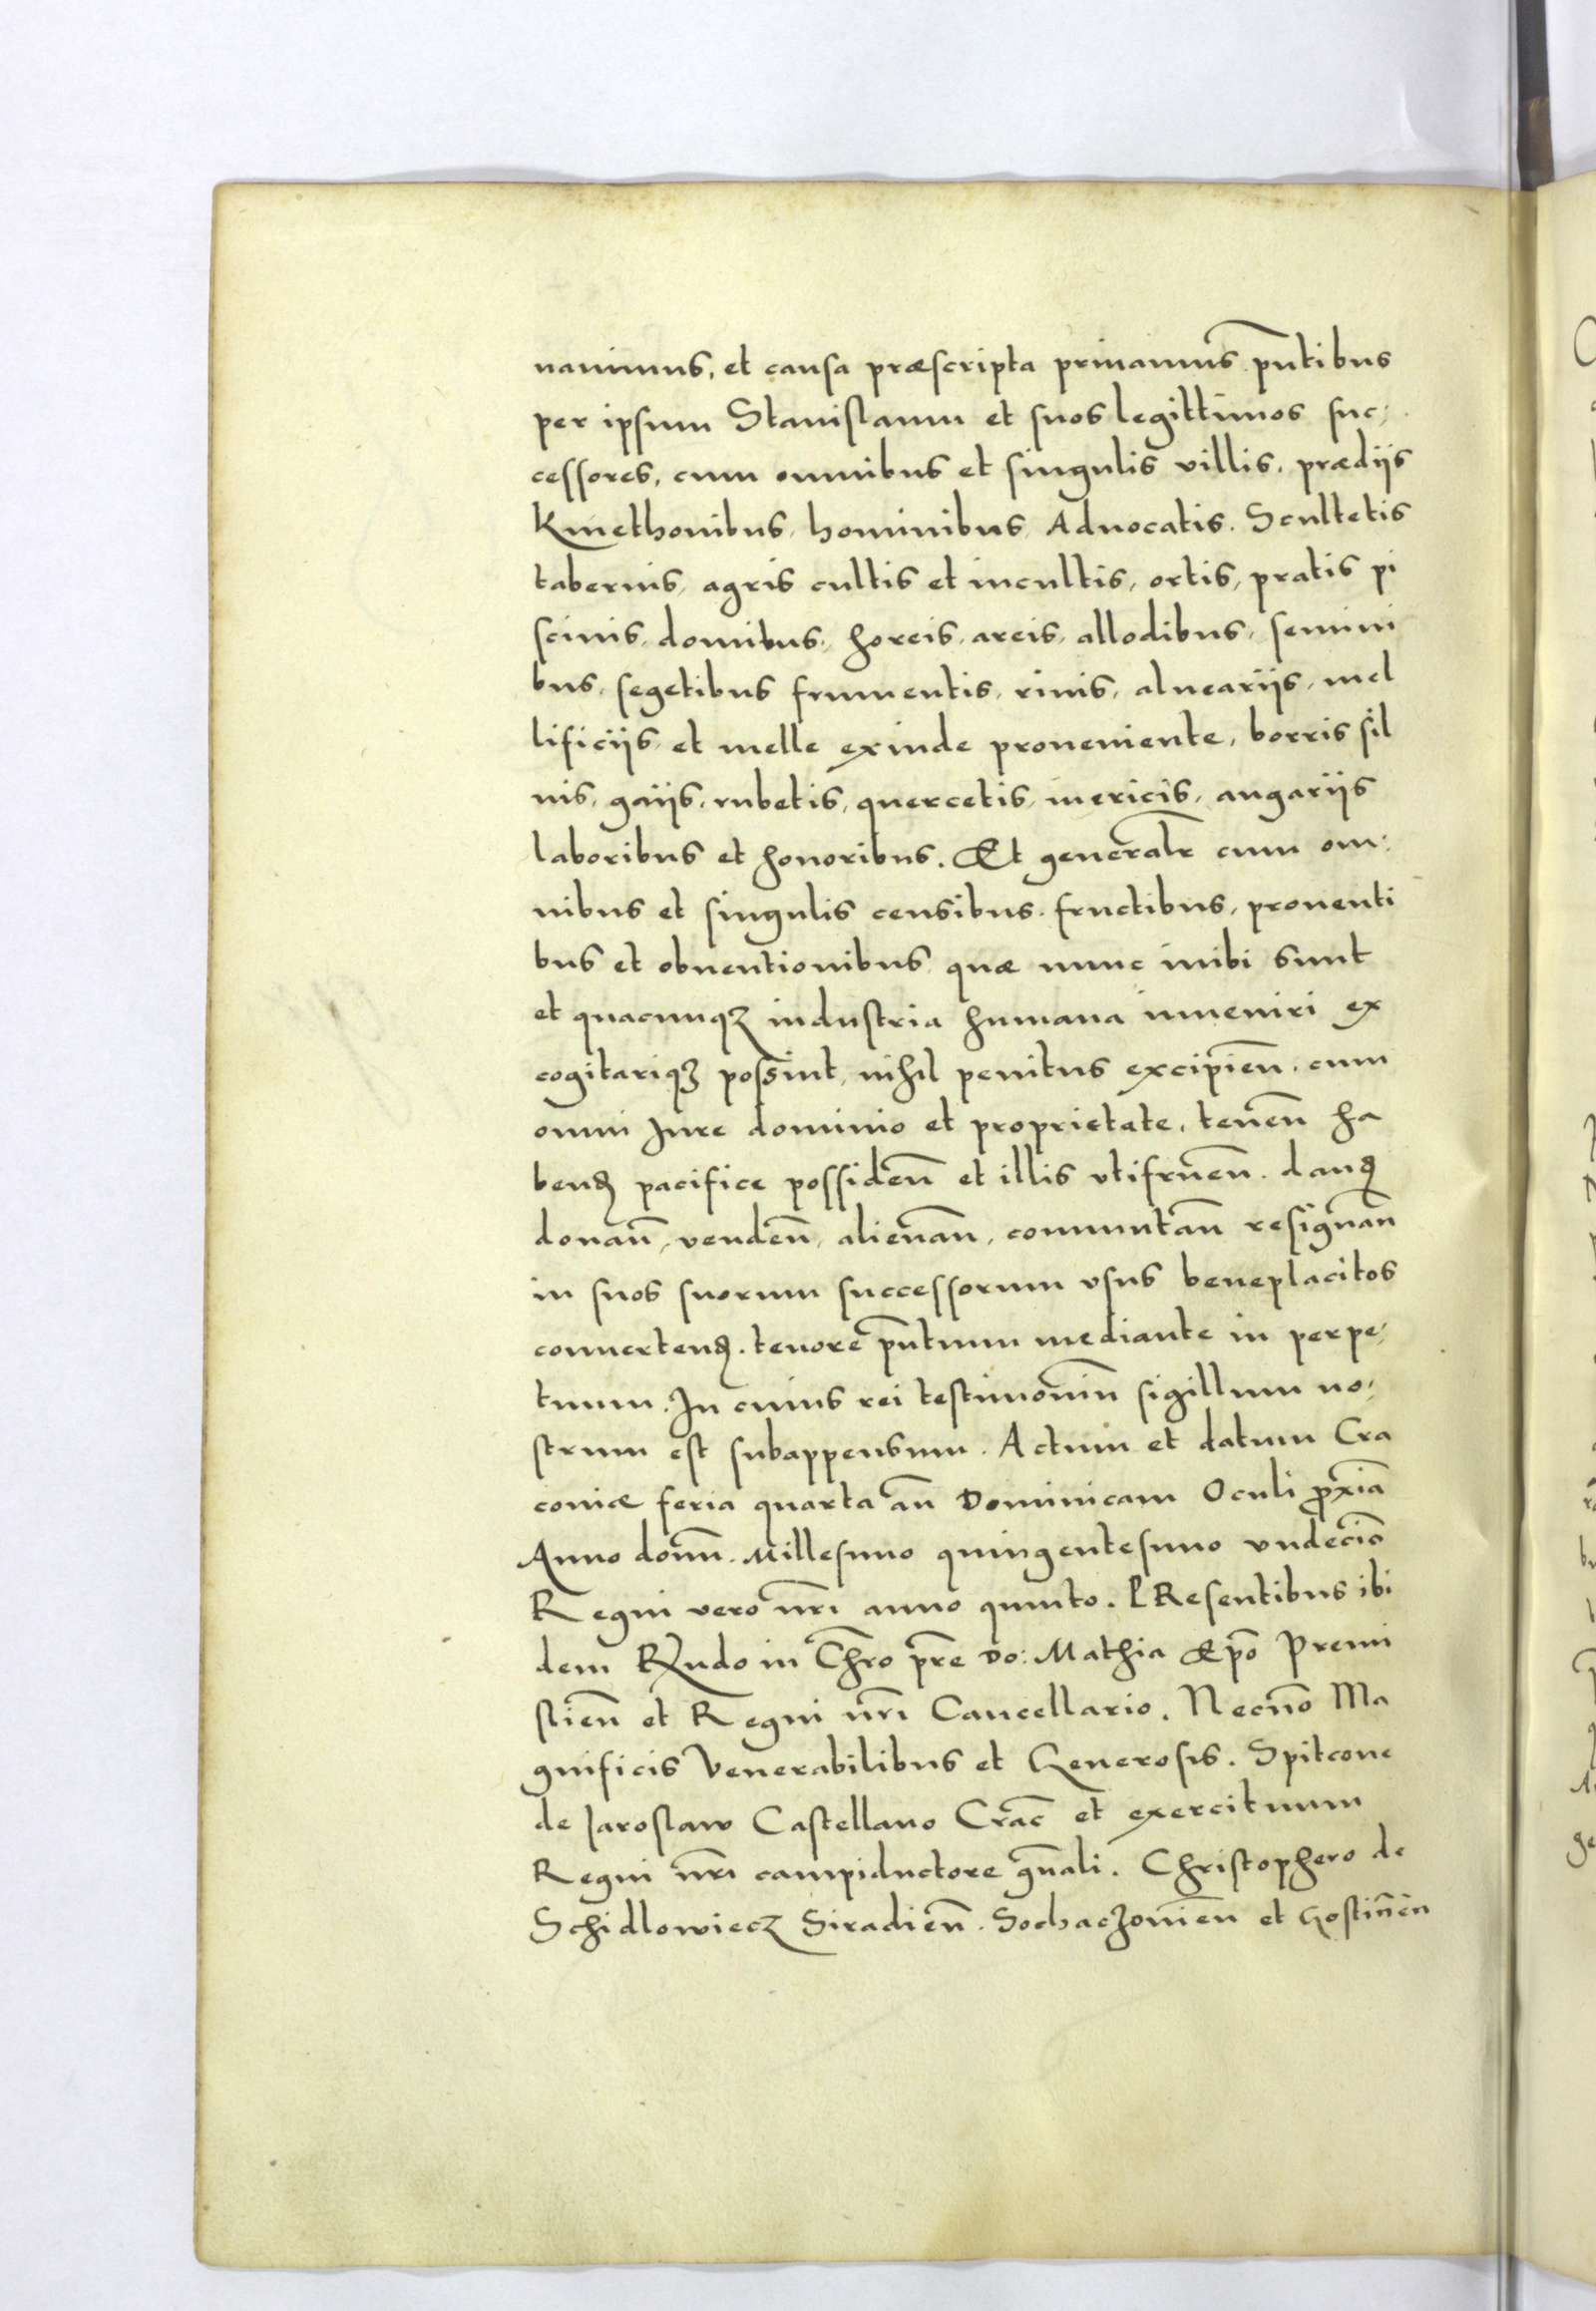 uauimus, et causa præscripta priuamus p̄ntibus
per ipsum Stanislaum et suos legittimos suc-
cessores, cum omnibus et singulis villis, prædijs
Kmethonibus, hominibus, Aduocatis. Scultetis
tabernis, agris cultis et incultis, ortis, pratis pi
scinis, domibus, horeis, areis, allodibus, semini
bus, segetibus frumentis, riuis, alueariis, mel
lificijs, et melle exinde proueniente, borris sil
uis, gaijs, rubetis, quercetis, mericis, angarijs
laboribus et honoribus. Et generalr̄ cum om-
nibus et singulis censibus. fructibus, prouenti
bus et obuentionibus quæ nunc inibi sunt
et quacunqȝ industria humana inueniri ex
cogitariqȝ possint, nihil penitus excipien̄. cum
omni Jure dominio et proprietate, tenen̄ ha
bend̨ pacifice possiden̄ et illis vtifruen̄. dand̨
donan̄, venden̄, alienan̄, commutan̄ resignan̄
in suos suorum successorum vsus beneplacitos
conuertend̨. tenore p̄ntium mediante in perpe-
tuum. In cuius rei testimoniū sigillum no-
strum est subappensum. Actum et datum Cra
couiæ feria quarta an̄ Dominicam Oculi p̄xiā
Anno domī. Millesimo quingentesimo vndecīo
Regni vero nr̄i anno quinto. PResentibus ibi
dem Rn̄do in Chr̄o pr̄e do: Mathia Ep̄o Premi
slien̄ et Regni nr̄i Cancellario. Necnō Ma
gnificis Venerabilibus et Generosis. Spitcone
de Jaroslaw Castellano Crac̄ et exercituum
Regni nr̄i campiductore gn̄ali. Christophero de
Schidlowiecz Siradien̄. Sochaczouien̄ et Gostinēn